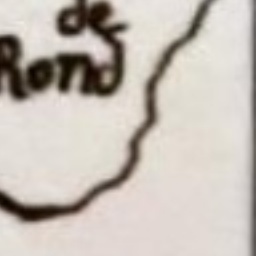 de
Rond